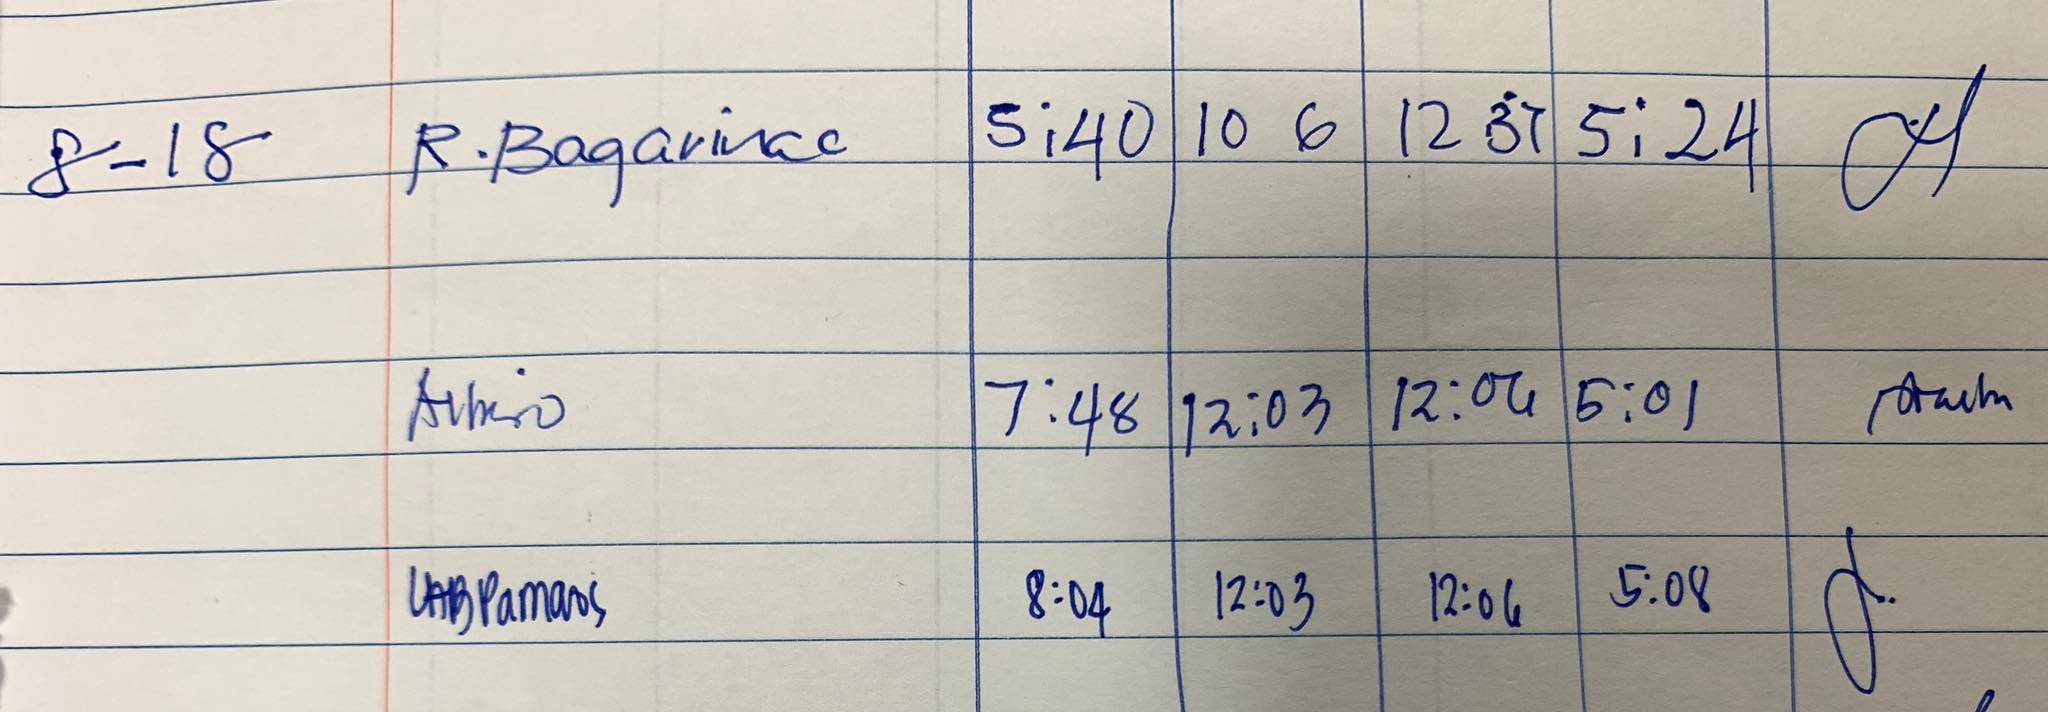 8-18 R. Bagarinao 5:40 10 6 12 37 5:24
7:48 12:03 12:06 5:01
LABPamaos 8:04 12:03 12:06 5:08